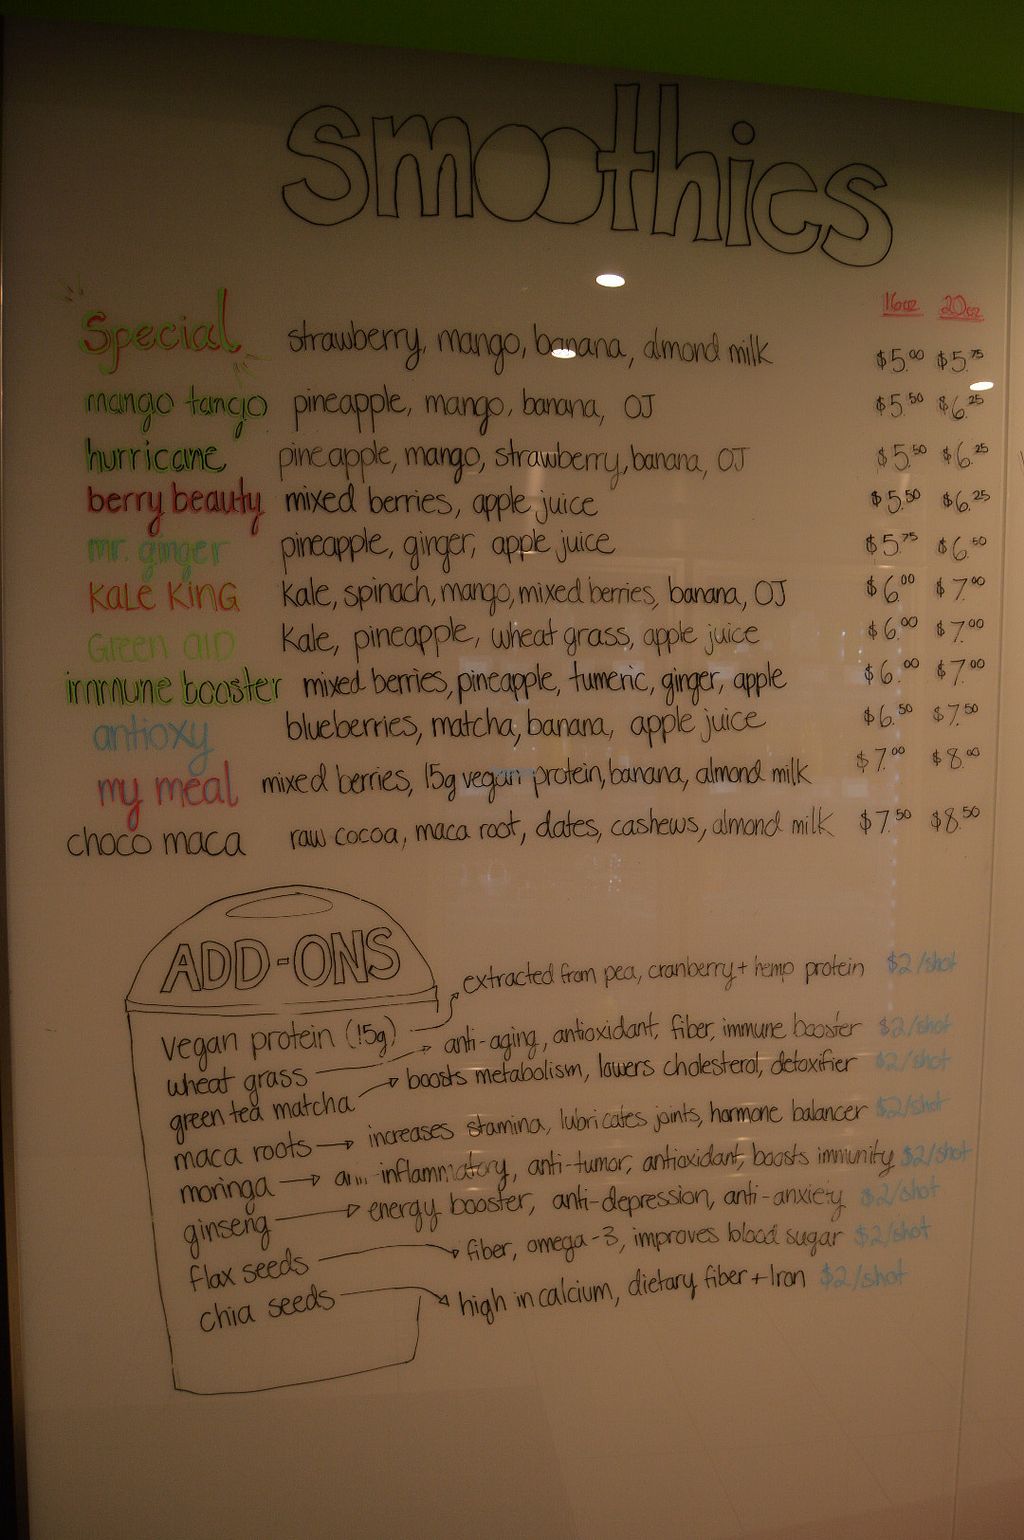 smoothies
16oz 20oz
Special strawberry, mango, banana, almond milk $5.00 $5.75
mango tango pineapple, mango, banana, OJ $5.50 $6.25
hurricane pineapple, mango, strawberry, banana, OJ $5.50 $6.25
berry beauty mixed berries, apple juice $5.50 $6.25
mr. ginger pineapple, ginger, apple juice $5.75 $6.50
KALE KING Kale, spinach, mango, mixed berries, banana, OJ $6.00 $7.00
Green aid Kale, pineapple, wheat grass, apple juice $6.00 $7.00
immune booster mixed berries, pineapple, tumeric, ginger, apple $6.00 $7.00
antioxy blueberries, matcha, banana, apple juice $6.50 $7.50
my meal mixed berries, 15g vegan protein, banana, almond milk $7.00 $8.00
choco maca raw cocoa, maca root, dates, cashews, almond milk $7.50 $8.50
ADD-ONS
vegan protein (15g) → extracted from pea, cranberry + hemp protein $2/shot
wheat grass → anti-aging, antioxidant, fiber, immune booster $2/shot
green tea matcha → boosts metabolism, lowers cholesterol, detoxifier $2/shot
maca roots → increases stamina, lubricates joints, hormone balancer $2/shot
moringa → inflammatory, anti-tumor, antioxidant, boosts immunity $2/shot
ginseng → energy booster, anti-depression, anti-anxiety $2/shot
flax seeds → fiber, omega-3, improves blood sugar $2/shot
chia seeds → high in calcium, dietary fiber + Iron $2/shot